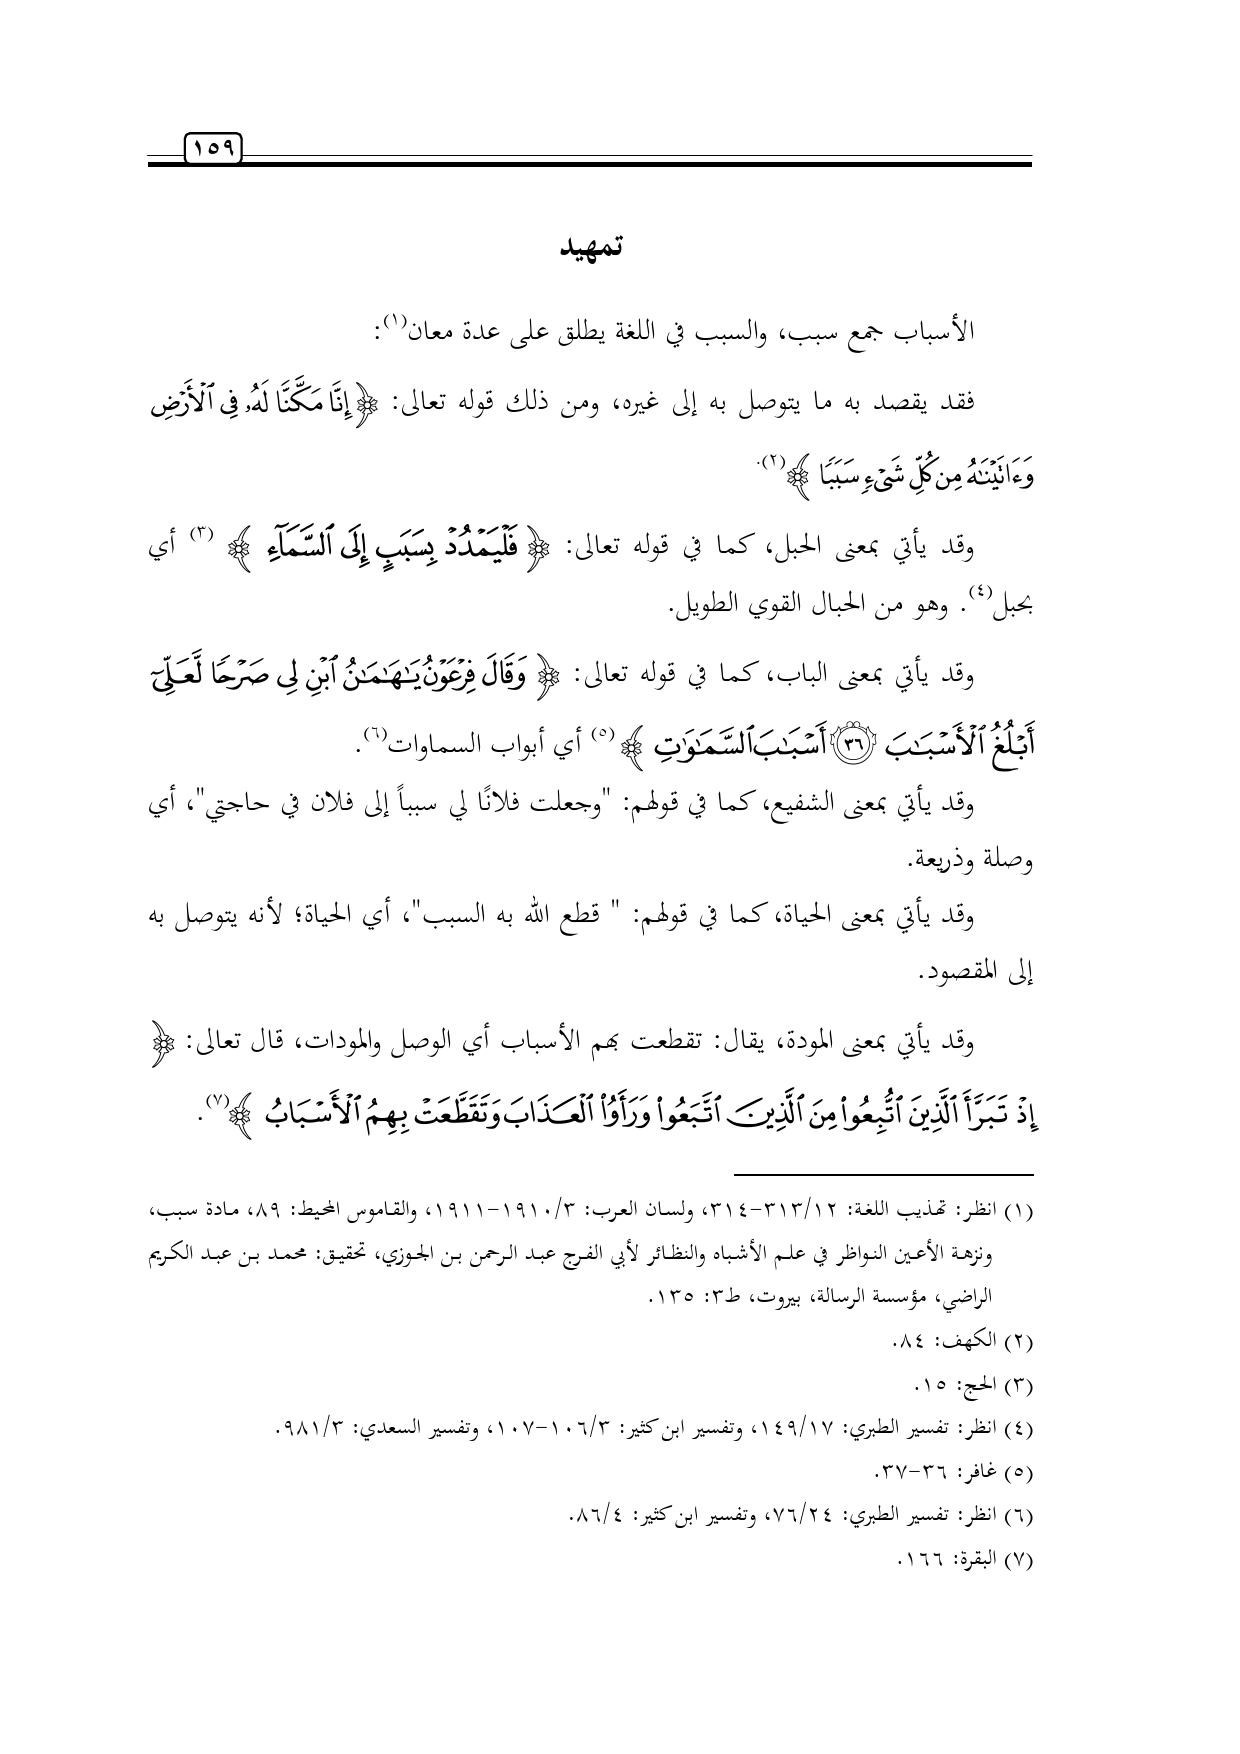 ١٥٩
تمهيد
الأسباب جمع سبب، والسبب في اللغة يطلق على عدة معان(١):
فقد يقصد به ما يتوصل به إلى غيره، ومن ذلك قوله تعالى: ﴿ إِنَّا مَكَّنَّا لَهُۥ فِى ٱلْأَرْضِ
وَءَاتَيْنَـٰهُ مِن كُلِّ شَىْءٍ سَبَبًا ﴾(٢).
وقد يأتي بمعنى الحبل، كما في قوله تعالى: ﴿ فَلْيَمْدُدْ بِسَبَبٍ إِلَى ٱلسَّمَآءِ ﴾ (٣) أي
بحبل(٤). وهو من الحبال القوي الطويل.
وقد يأتي بمعنى الباب، كما في قوله تعالى: ﴿ وَقَالَ فِرْعَوْنُ يَـٰهَـٰمَـٰنُ ٱبْنِ لِى صَرْحًا لَّعَلِّىٓ
أَبْلُغُ ٱلْأَسْبَـٰبَ ٣٦ أَسْبَـٰبَ ٱلسَّمَـٰوَٰتِ ﴾ (٥) أي أبواب السماوات(٦).
وقد يأتي بمعنى الشفيع، كما في قولهم: "وجعلت فلانًا لي سبباً إلى فلان في حاجتي"، أي
وصلة وذريعة.
وقد يأتي بمعنى الحياة، كما في قولهم: " قطع الله به السبب"، أي الحياة؛ لأنه يتوصل به
إلى المقصود.
وقد يأتي بمعنى المودة، يقال: تقطعت بهم الأسباب أي الوصل والمودات، قال تعالى: ﴿
إِذْ تَبَرَّأَ ٱلَّذِينَ ٱتُّبِعُوا۟ مِنَ ٱلَّذِينَ ٱتَّبَعُوا۟ وَرَأَوُا۟ ٱلْعَذَابَ وَتَقَطَّعَتْ بِهِمُ ٱلْأَسْبَابُ ﴾(٧).
(١) انظر: تهذيب اللغة: ٣١٣/١٢-٣١٤، ولسان العرب: ١٩١٠/٣-١٩١١، والقاموس المحيط: ٨٩، مادة سبب،
ونزهة الأعين النواظر في علم الأشباه والنظائر لأبي الفرج عبد الرحمن بن الجوزي، تحقيق: محمد بن عبد الكريم
الراضي، مؤسسة الرسالة، بيروت، ط٣: ١٣٥.
(٢) الكهف: ٨٤.
(٣) الحج: ١٥.
(٤) انظر: تفسير الطبري: ١٤٩/١٧، وتفسير ابن كثير: ١٠٦/٣-١٠٧، وتفسير السعدي: ٩٨١/٣.
(٥) غافر: ٣٦-٣٧.
(٦) انظر: تفسير الطبري: ٧٦/٢٤، وتفسير ابن كثير: ٨٦/٤.
(٧) البقرة: ١٦٦.